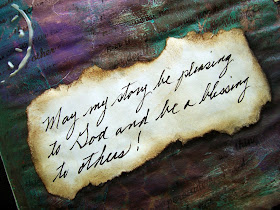 May my story be pleasing
to God and be a blessing
to others!